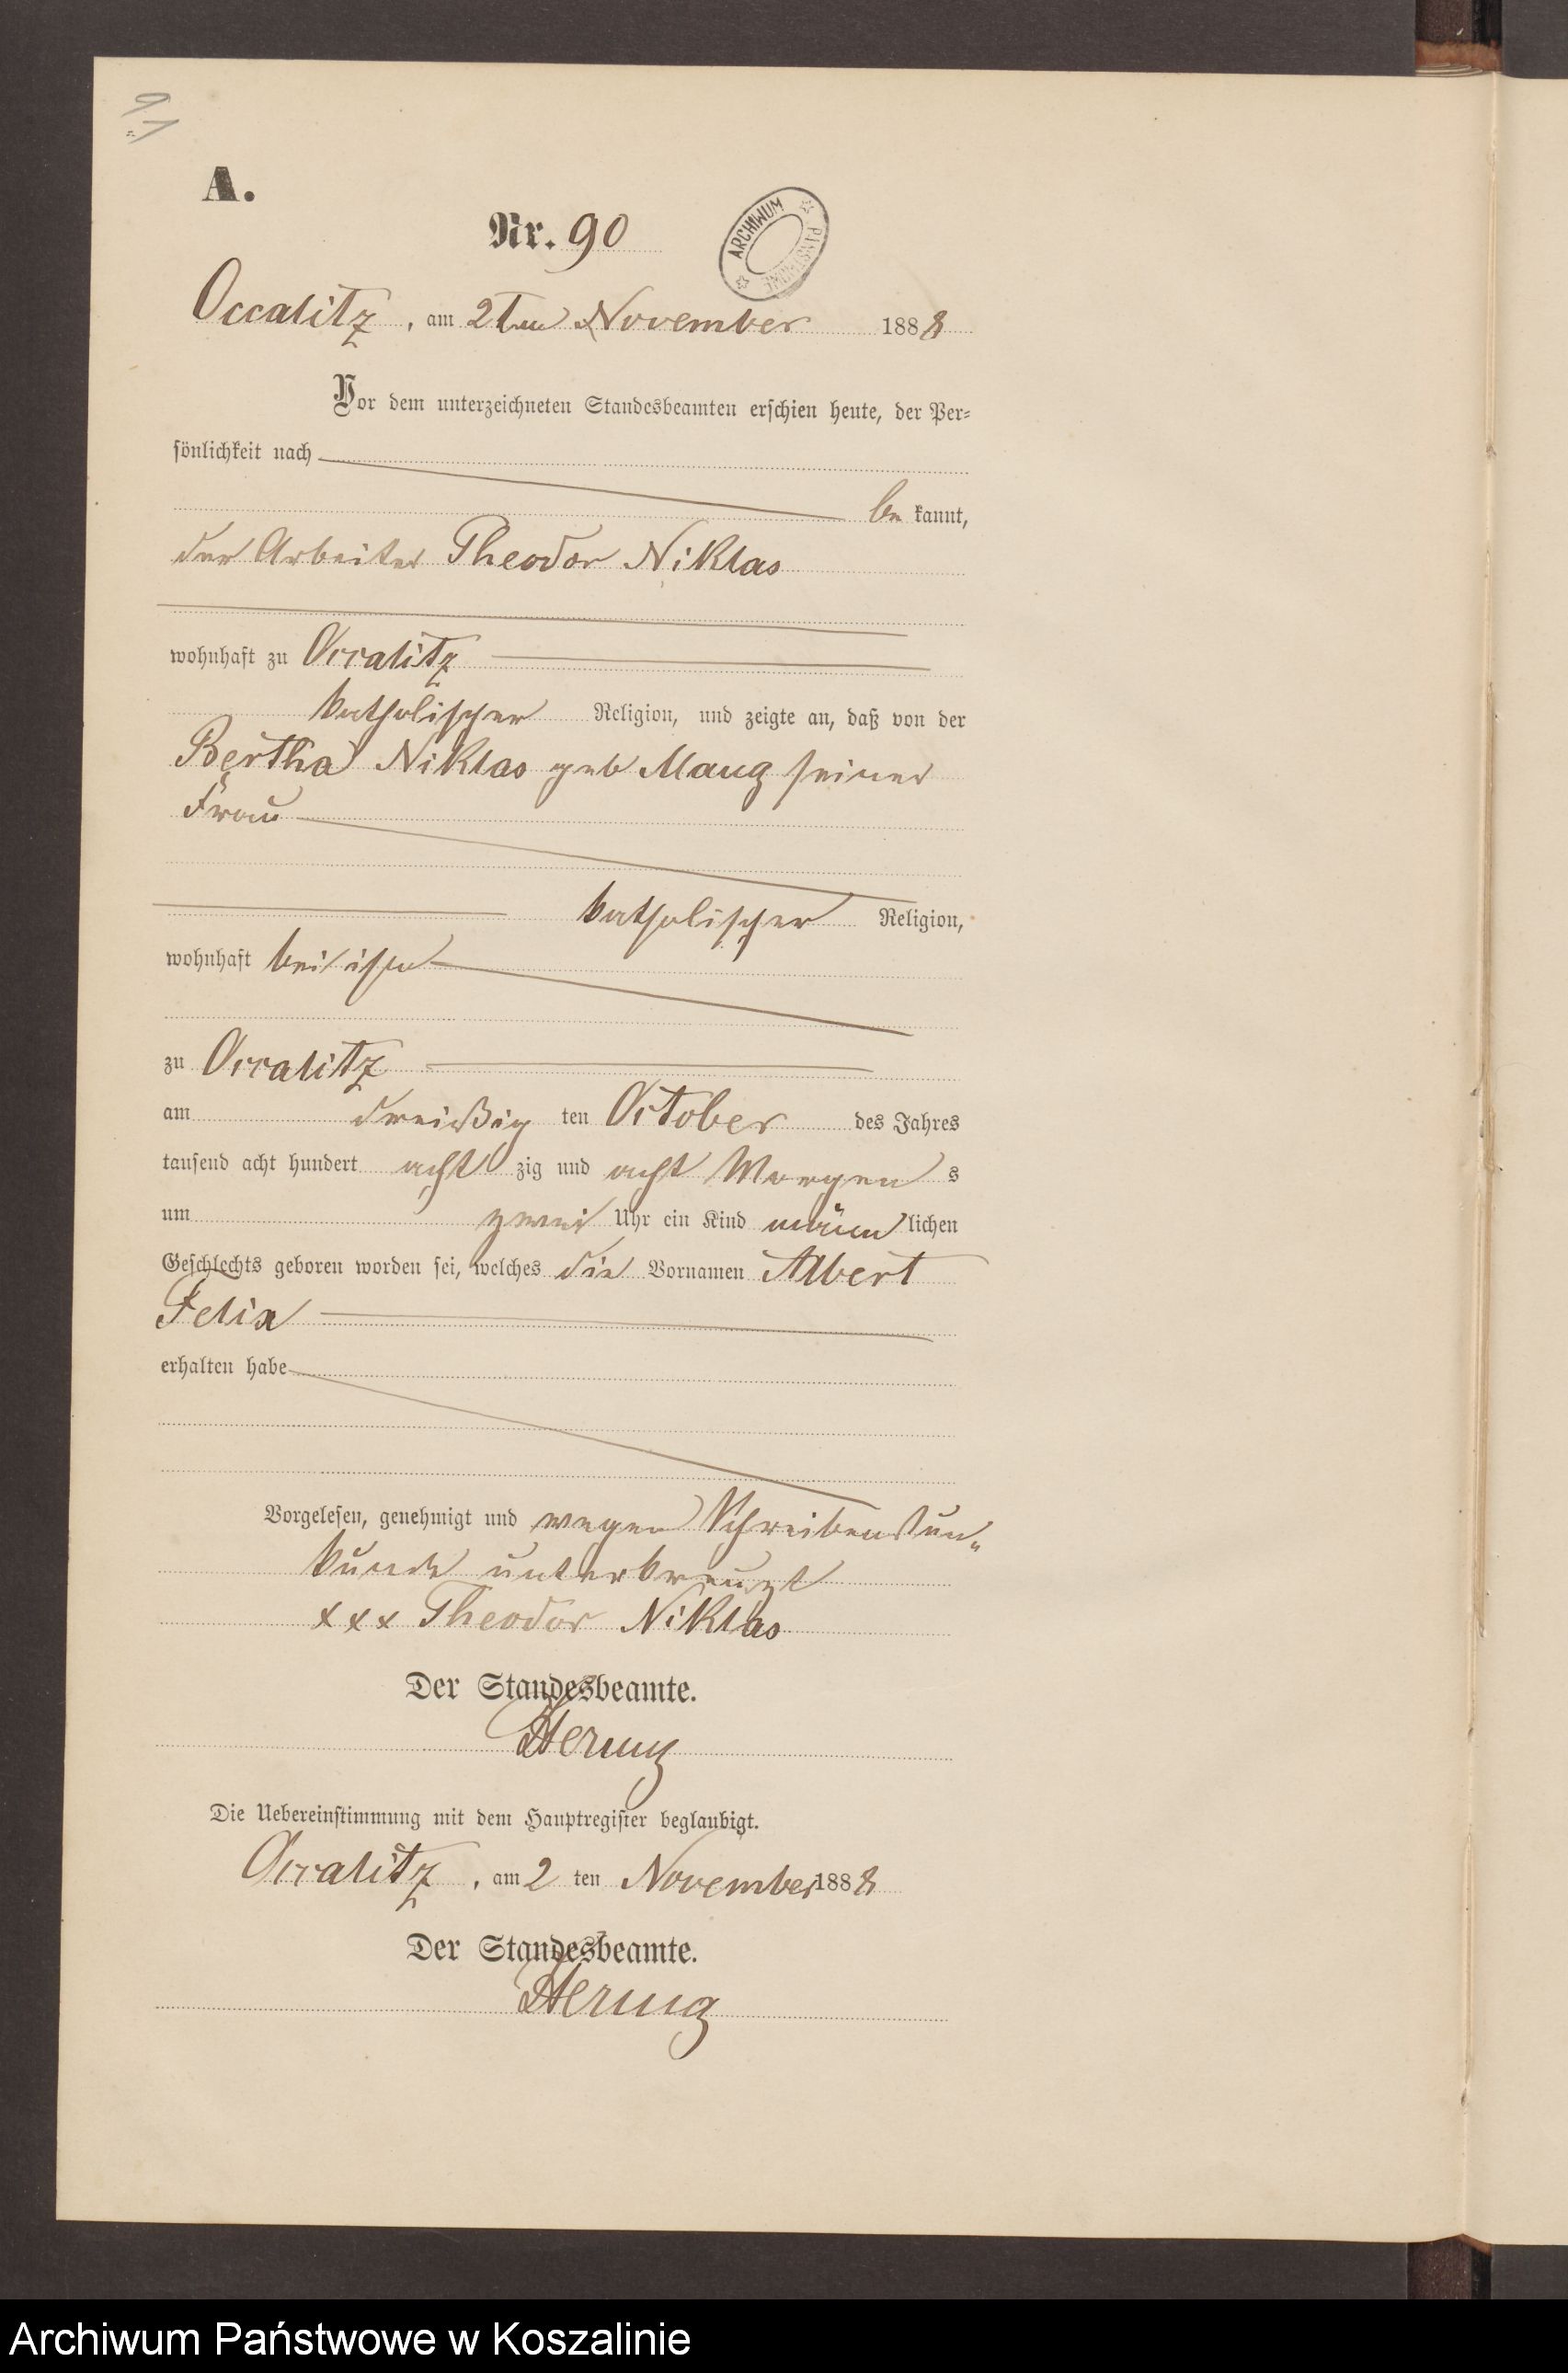 91
A.
Nr. 90
ARCHIWUM PAŃSTWOWE
Occalitz, am 2ten November 1888
Vor dem unterzeichneten Standesbeamten erschien heute, der Per-
sönlichkeit nach
be kannt,
der Arbeiter Theodor Niklas
wohnhaft zu Occalitz
katholischer Religion, und zeigte an, daß von der
Bertha Niklas geb Maug seiner
Frau
katholischer Religion,
wohnhaft bei ihm
zu Occalitz
am dreißig ten October des Jahres
tausend acht hundert acht zig und acht Morgen s
um zwei Uhr ein Kind männ lichen
Geschlechts geboren worden sei, welches die Vornamen Albert
Felix
erhalten habe
Vorgelesen, genehmigt und wegen Schreibensun-
kunde unterkreuzt
xxx Theodor Niklas
Der Standesbeamte.
Die Uebereinstimmung mit dem Hauptregister beglaubigt.
Occalitz, am 2 ten November 1888
Der Standesbeamte.
Archiwum Państwowe w Koszalinie